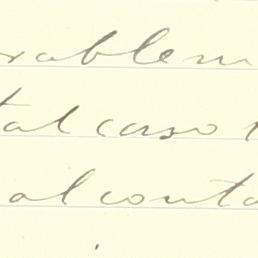 rablem
tal caso
al conta